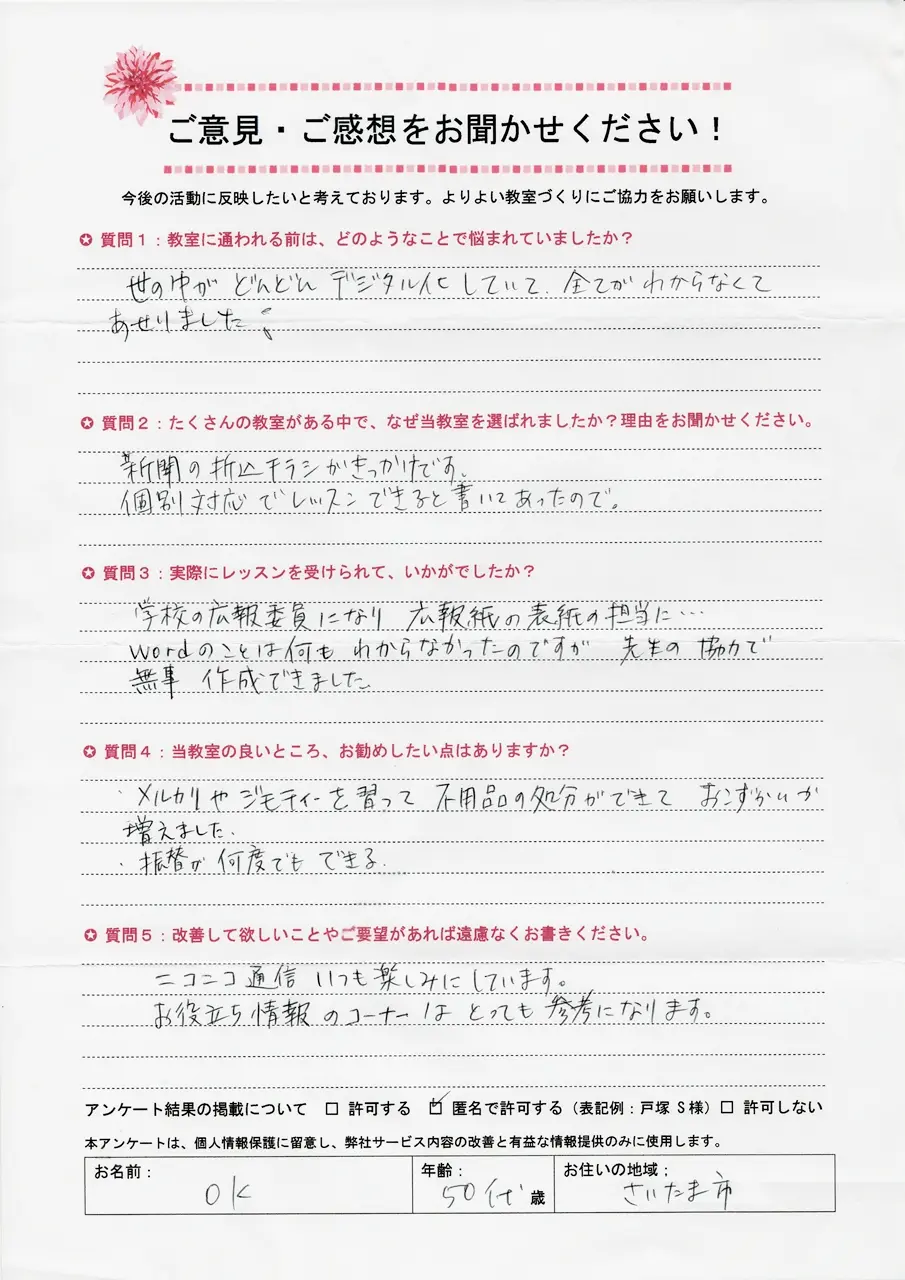 ご意見・ご感想をお聞かせください！
今後の活動に反映したいと考えております。よりよい教室づくりにご協力をお願いします。
✪ 質問１：教室に通われる前は、どのようなことで悩まれていましたか？
世の中が どんどん デジタル化していて、全てが わからなくて
あせりました
✪ 質問２：たくさんの教室がある中で、なぜ当教室を選ばれましたか？理由をお聞かせください。
新聞の折込チラシがきっかけです。
個別対応でレッスンできると書いてあったので。
✪ 質問３：実際にレッスンを受けられて、いかがでしたか？
学校の広報委員になり 広報紙の表紙の担当に…
wordのことは何も わからなかったのですが 先生の協力で
無事 作成できました
✪ 質問４：当教室の良いところ、お勧めしたい点はありますか？
・メルカリやジモティーを習って 不用品の処分ができて おこずかいが
増えました。
・振替が 何度でも できる.
✪ 質問５：改善して欲しいことやご要望があれば遠慮なくお書きください。
ニコニコ通信 いつも楽しみにしています。
お役立ち情報のコーナーは とっても参考になります。
アンケート結果の掲載について □ 許可する ☑ 匿名で許可する（表記例：戸塚 S 様）□ 許可しない
本アンケートは、個人情報保護に留意し、弊社サービス内容の改善と有益な情報提供のみに使用します。
お名前： 年齢： お住いの地域；
OK 50代 歳 さいたま市